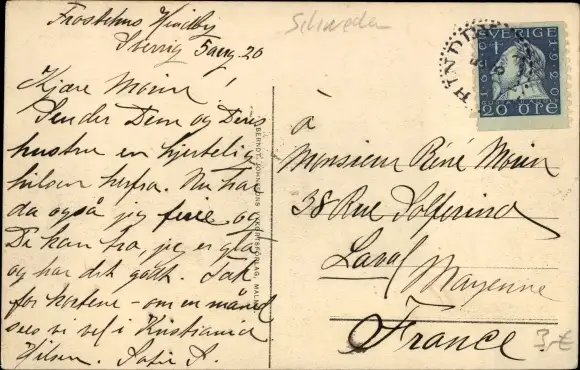 Frostehus Hindby
Sverrig 5 aug. 20
Kjære Moin!
Sender Dem og Deres
hustru en hjertelig
hilsen herfra. Nu har
da også jeg ferie og
De kan tro, jeg er gla
og har det godt. Tak
for kortene – om en måned
sees vi vel i Kristiania
Hilsen. Sofie S.
Schweda
SVERIGE
1620
1920
20 ÖRE
à
Monsieur René Moin
38 Rue Solferino
Laval
Mayenne
France
3,-€